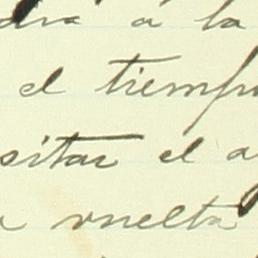 á la
el tiempo
sitar el a
vuelta